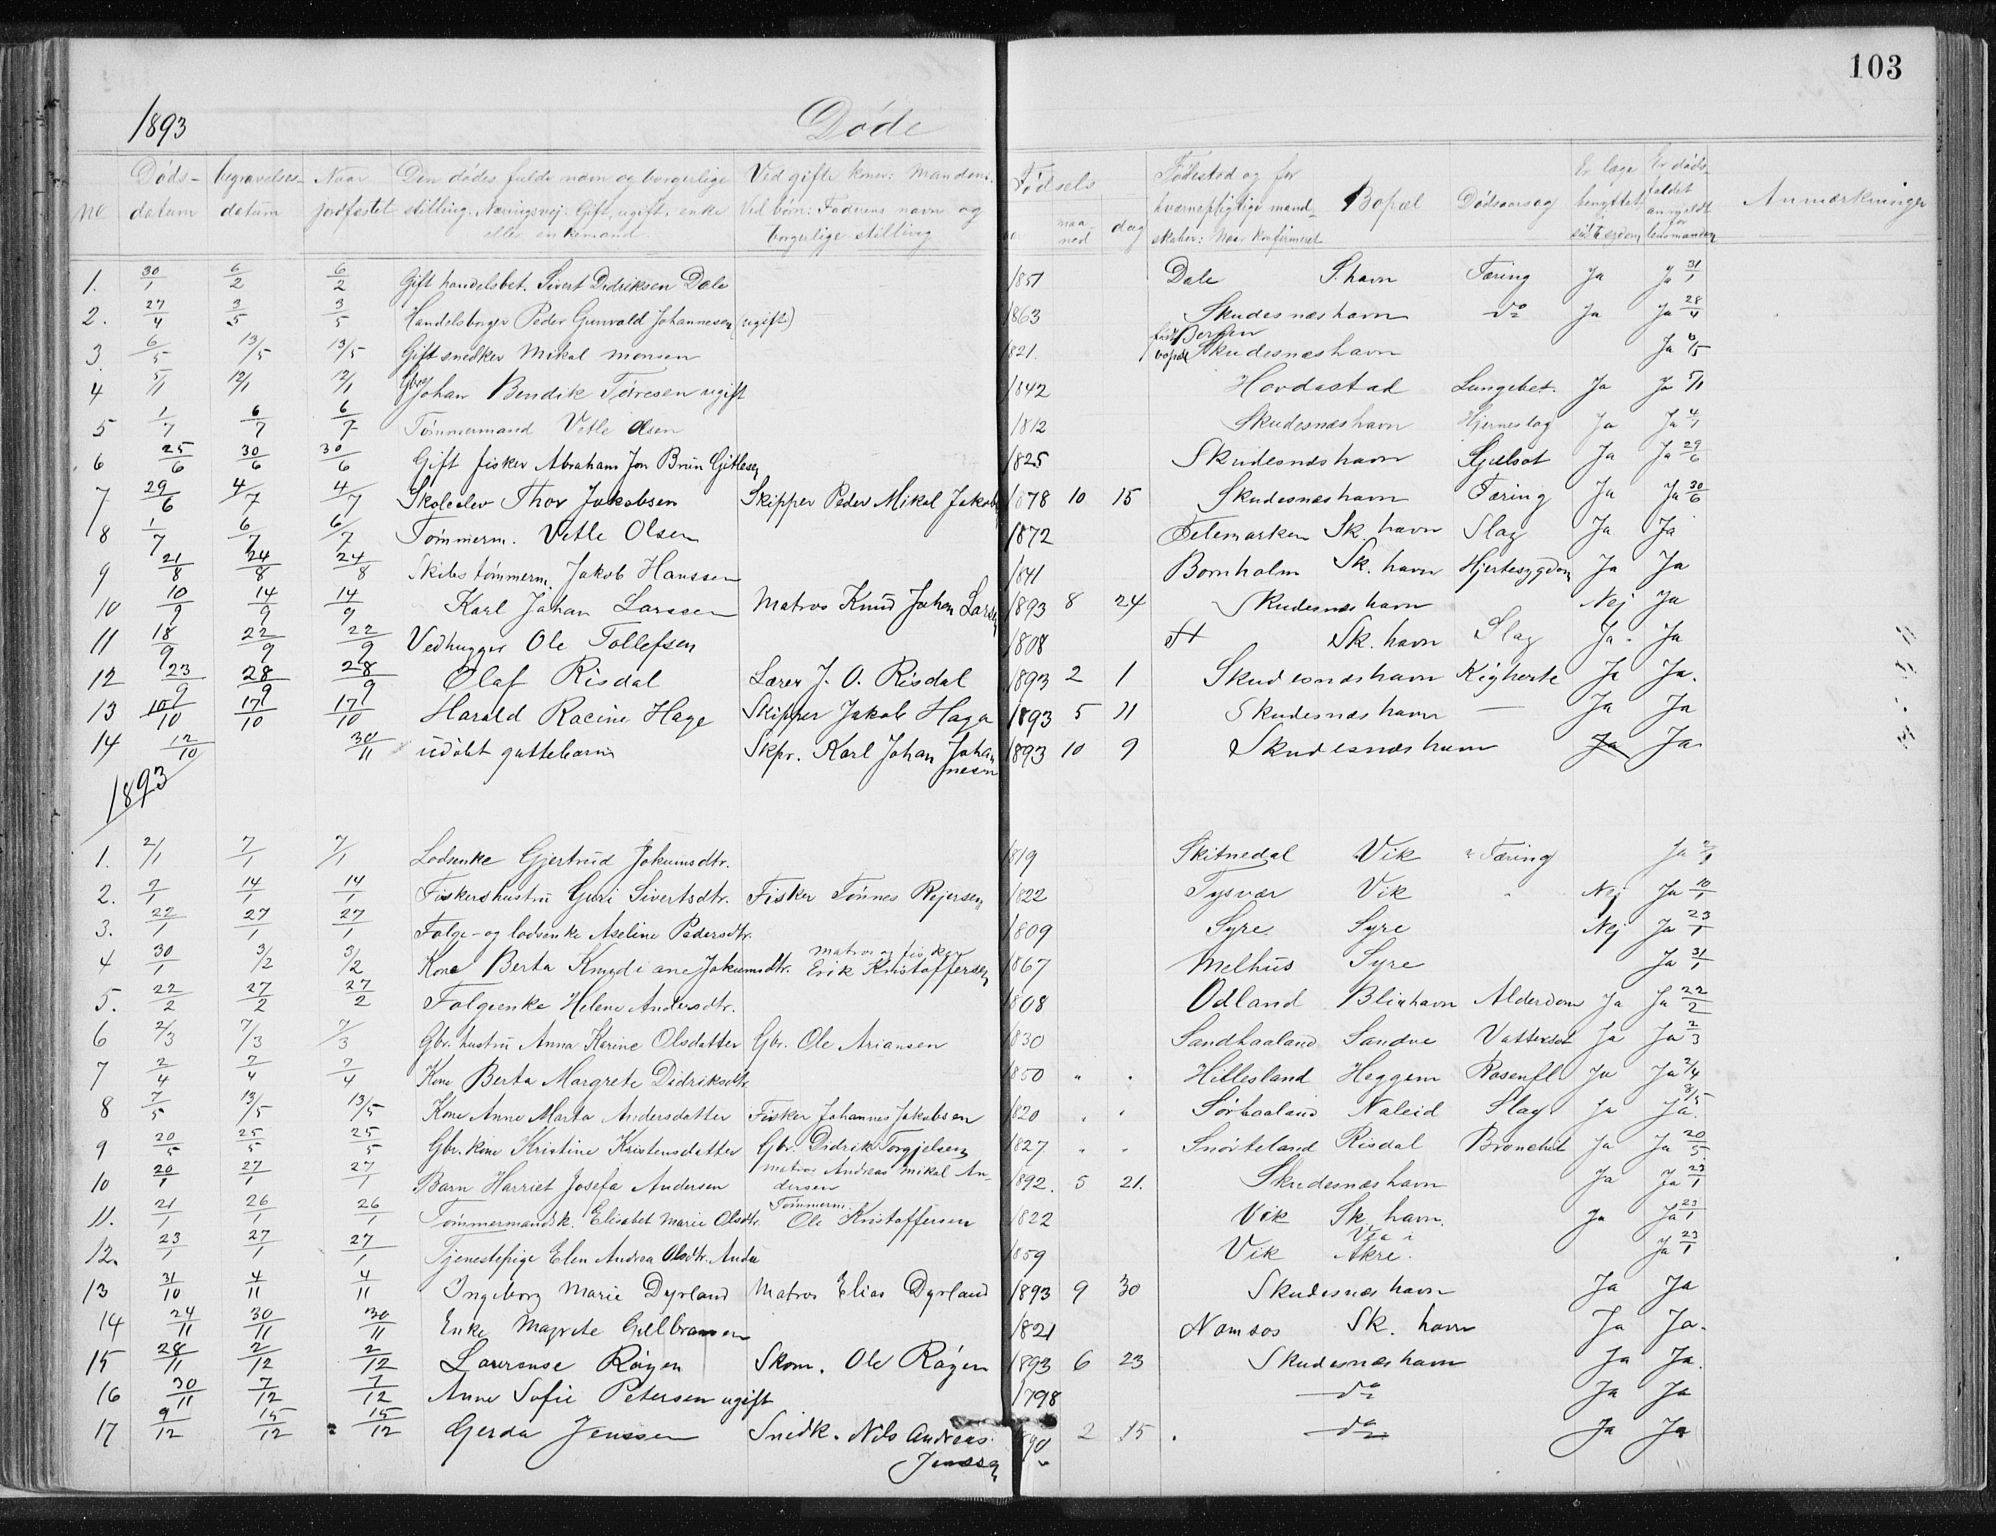 103
1893 Døde
No Døds-datum begravelses-datum Naar jordfæstet Den dødes fulde navn og borgerlige stilling. Næringsvej. Gift, ugift, enke eller enkemand. Ved gifte koner: Mandens. Ved børn: Faderens navn og borgerlige stilling Fødsels aar maaned dag Fødested og for værnepligtige mandskaber: Naar konfirmeret Bopæl Dødsaarsag Er læge benyttet sidst Er dødsfaldet anmeldt for lensmanden Anmærkninger
1. 30/1 6/2 6/2 Gift handelsbet. Sivert Didriksen Dale 1851 Dale S.havn Tæring Ja Ja 31/1
2. 27/4 3/5 3/5 Handelsborger Peder Gunvald Johannesen (ugift) 1863 Skudesnæshavn do Ja Ja 28/4
3. 6/5 13/5 13/5 Gift snedker Mikal Monsen 1821. født Bergen bopæl Skudesnæshavn Ja 6/5
4 5/1 12/1 12/1 Gbr Johan Bendik Tøresen ugift 1842 Hovdastad Lungebet. Ja Ja 5/1
5 1/7 6/7 6/7 Tømmermand Vetle Olsen 1812 Skudesnæshavn Hjerneslag Ja Ja 4/1
6 25/6 30/6 30/6 Gift fisker Abraham Jon Brun Gitlesen 1825 Skudesnæshavn Ja Ja 29/6
7 29/6 4/7 4/7 Skoleelev Thor Jakobsen Skipper Peder Mikal Jakobs 1878 10 15 Skudesnæshavn Tæring Ja Ja 30/6
8 1/7 6/7 6/7 Tømmerm. Vetle Olsen 1872 Telemarken Sk. havn Slag Ja Ja
9 21/8 24/8 24/8 Skibstømmerm. Jakob Hanssen 1841 Bornholm Sk. havn Hjertesygdom Ja Ja
10 10/9 14/9 14/9 Karl Johan Larssen Matros Knud Johan Larsen 1893 8 24 Skudesnæshavn Nej Ja
11 18/9 22/9 22/9 Vedhugger Ole Tollefsen 1808 Sk. havn Slag Ja. Ja
12 23/9 28/9 28/9 Olaf Risdal Lærer J. O. Risdal 1893 2 1 Skudesnæshavn Kighoste Ja Ja.
13 10/10 17/10 17/10 Harald Racine Hage Skipper Jakob Haga 1893 5 11 Skudesnæshavn — Ja Ja
14 12/10 30/11 udøbt guttebarn Skpr. Karl Johan Johannesen 1893 10 9 Skudesnæshavn Ja Ja
1893
1. 2/1 7/1 7/1 Lodsenke Gjertrud Jokumsdtr. 1819 Skitnedal Vik Tæring Ja 2/1
2. 7/1 14/1 14/1 Fiskershustru Guri Sivertsdtr. Fisker Tønnes Rejersen 1822 Tysvær Vik " Nej Ja 10/1
3. 22/1 27/1 27/1 Følge- og lodsenke Aseline Pedersdtr. 1809 Syre Syre Nej Ja 23/1
4 30/1 3/2 3/2 Kone Berta Knudiane Jokumsdtr. matros og fisker Erik Kristoffersen 1867 Melhus Syre Ja 31/1
5. 22/2 27/2 27/2 Følgeenke Helene Andersdtr. 1808 Odland Blikhavn Alderdom Ja Ja 22/2
6 2/3 7/3 7/3 Gbr. hustru Anna Karine Olsdatter Gbr. Ole Ariansen 1830 Sandhaaland Sandve Vattersot Ja Ja 2/3
7 2/4 7/4 7/4 Kone Berta Margrete Didriksdtr. 1850 " " Hillesland Heggem Rosenfl Ja Ja 2/4
8 7/5 13/5 13/5 Kone Anne Marta Andersdatter Fisker Johannes Jakobsen 1820 " " Sørhaaland Naleid Slag Ja Ja 8/5
9 20/5 25/5 25/5 Gbr. kone Kristine Kristensdatter Gbr. Didrik Torgjelsen 1827 " " Snørteland Risdal Bronchit Ja Ja 20/5
10 20/1 27/1 27/1 Barn Harriet Josefa Andersen matros Andreas Mikal Andersen 1892. 5 21. Skudesnæshavn Ja Ja 23/1
11. 21/1 26/1 26/1 Tømmermandsk. Elisabet Marie Olsdtr. Tømmerm. Ole Kristoffersen 1822 Vik Sk. havn. Ja Ja 23/1
12. 23/1 27/1 27/1 Tjenestepige Elen Andrea Olsdtr. 1859 Vik Vea i Akre. Ja 23/1
13 31/10 4/11 4/11 Ingeborg Marie Dyrland Matros Elias Dyrland 1893 9 30 Skudesnæshavn Ja Ja
14 24/11 30/11 30/11 Enke Magrete Gullbransen 1821 Namsos Sk. havn Ja Ja.
15 28/11 2/12 2/12 Laurense Røgen Skom. Ole Røgen 1893 6 23 Skudesnæshavn Ja Ja.
16 30/11 7/12 7/12 Anne Sofie Petersen ugift 1798 do Ja Ja
17 9/12 15/12 15/12 Gerda Jenssen Snedk. Nils Andreas Jenssen 1890 2 15 do Ja Ja